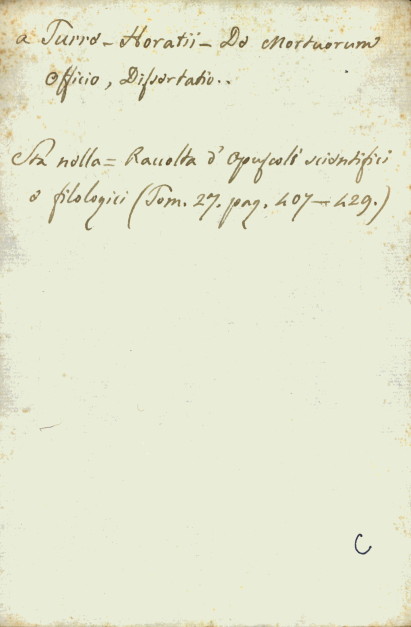 a Turre - Horatii - De Mortuorum
Officio, Dissertatio..
Sta nella = Raccolta d' Opuscoli scientifici
e filologici (Tom. 27. pag. 407-429.)
C